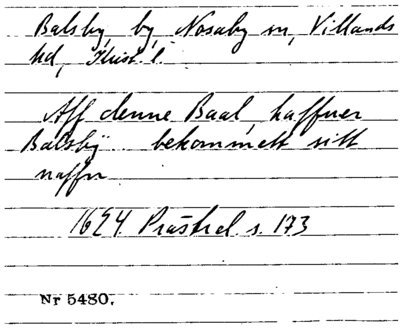 Balsby by, Nosaby sn, Villands
hd, Krist. l.
Aff denne Baal haffuer
Balsbÿ bekommett sitt
naffn
1624 Prästrel. s. 173
Nr 5480.